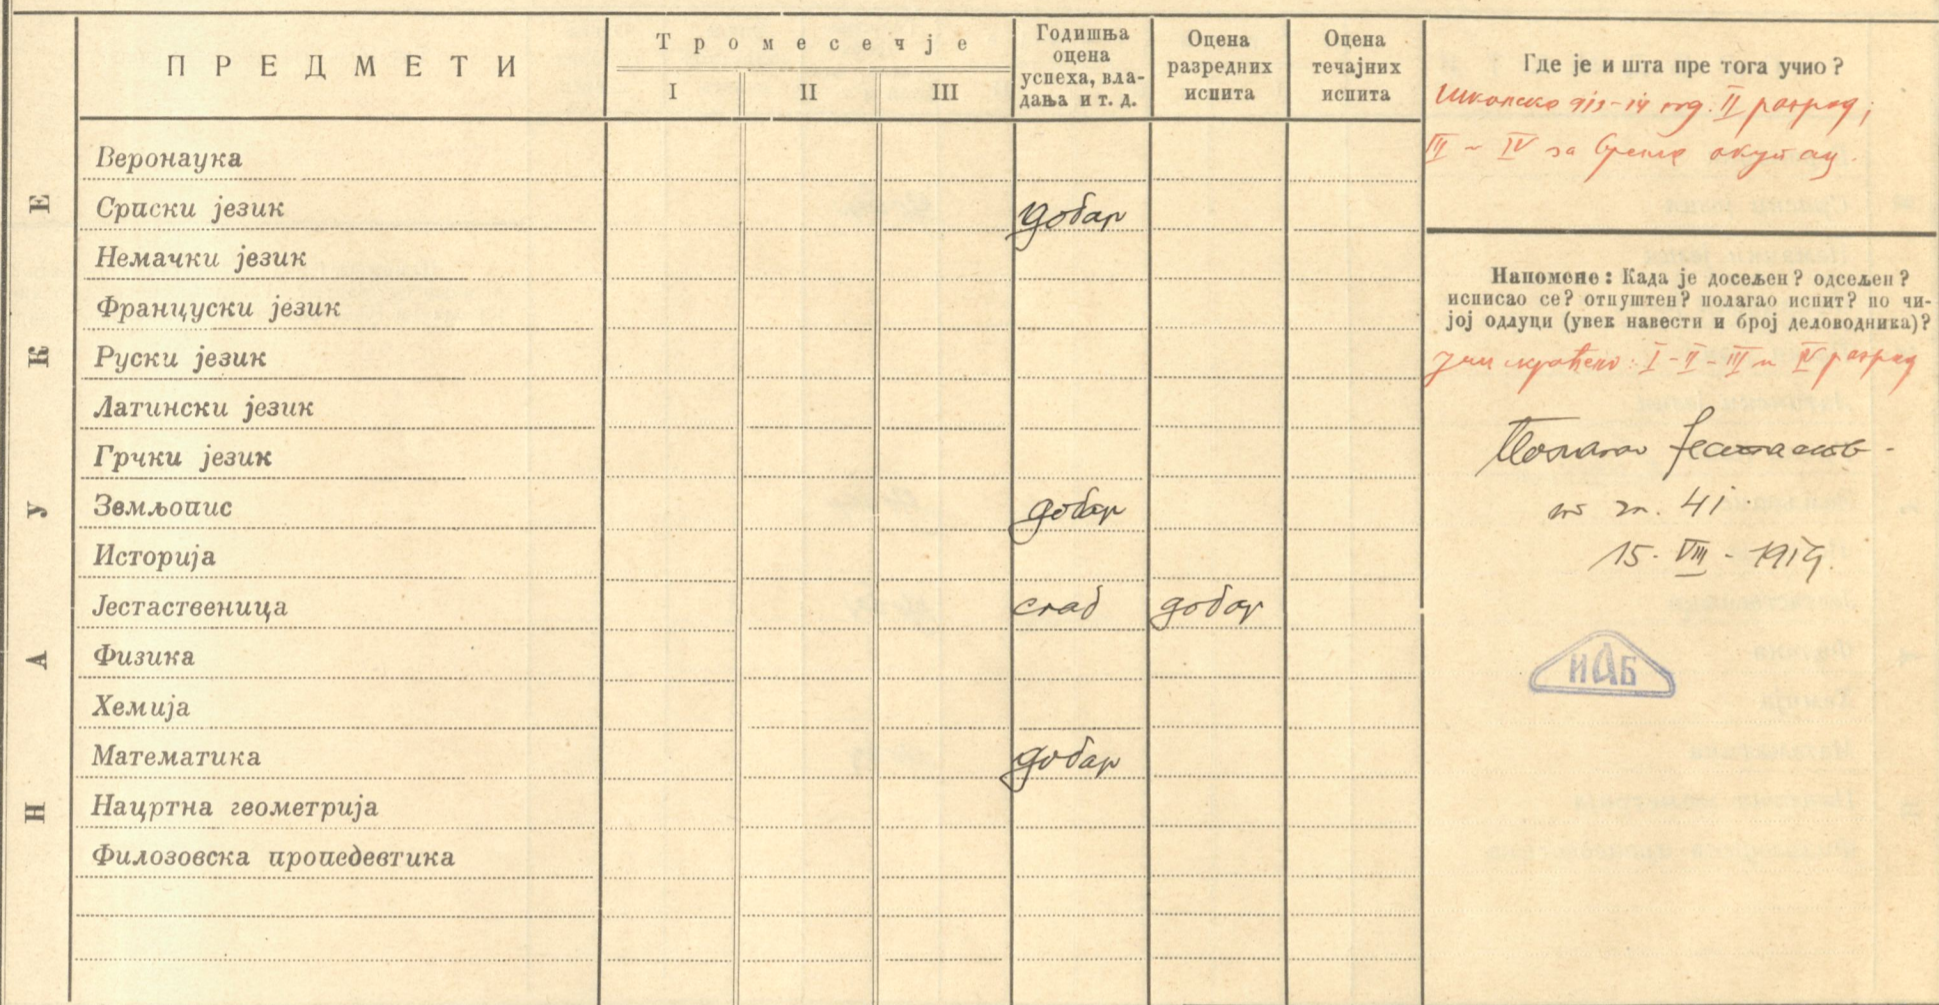 ПРЕДМЕТИ
Тромесечје
I
II
III
Годишња
оцена
успеха, вла-
дања и т. д.
Оцена
разредних
испита
Оцена
течајних
испита
НАУКЕ
Веронаука
Српски језик добар
Немачки језик
Француски језик
Руски језик
Латински језик
Грчки језик
Земљопис добар
Историја
Јестаственица слаб добар
Физика
Хемија
Математика добар
Нацртна геометрија
Филозовска пропедевтика
Где је и шта пре тога учио?
Школске 913-14 год. II разред;
III и IV за време окупац.
Напомене: Када је досељен? одсељен?
исписао се? отпуштен? полагао испит? по чи-
јој одлуци (увек навести и број деловодника)?
Учи скраћено: I-II-III и IV разред
Полагао
41
15-VIII-1919.
ИАБ